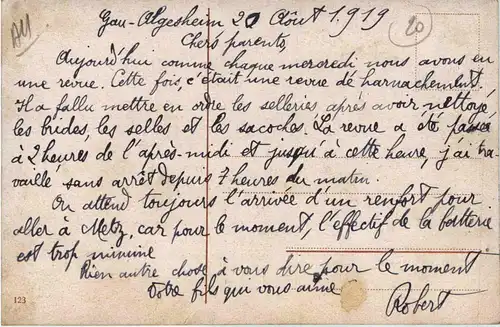 All
Gau-Algesheim 20 Août 1919
20
Chers parents,
Aujourd'hui comme chaque mercredi nous avons eu
une revue. Cette fois, c'était une revue de harnachement.
Il a fallu mettre en ordre les selleries après avoir nettoyé
les brides, les selles et les sacoches. La revue a été passée
à 2 heures de l'après-midi et jusqu'à cette heure, j'ai tra-
vaillé sans arrêt depuis 7 heures du matin.
On attend toujours l'arrivée d'un renfort pour
aller à Metz, car pour le moment, l'effectif de la batterie
est trop minime
Rien autre chose à vous dire pour le moment
Votre fils qui vous aime
Robert
123